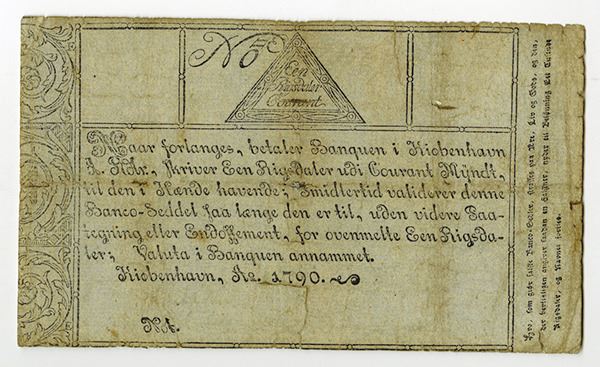 No
Een
Rigsdaler
Courant
Naar forlanges, betaler Banquen i Kiobenhavn
A. Hdbr., skriver Een Rigsdaler udi Courant Myndt,
til den i Hænde havende; Imidlertid validerer denne
Banco-Seddel saa længe den er til, uden videre Paa-
tegning eller Endossement, for ovenmelte Een Rigsda-
ler; Valuta i Banquen annammet.
Kiobenhavn, Ao. 1790.
Not.
som giør falske Banco-Sedler, straffes paa Ære, Liv og Gods, og den,
der beviisligen angiver saadan en Falskner, nyder til Belønning Eet Tusinde
Rigsdaler, og Navnet forties.